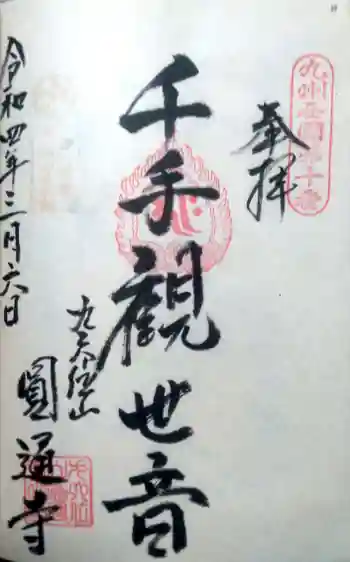 九州西國第十番
奉拝
千手觀世音
九六位山
圓通寺
令和四年三月六日